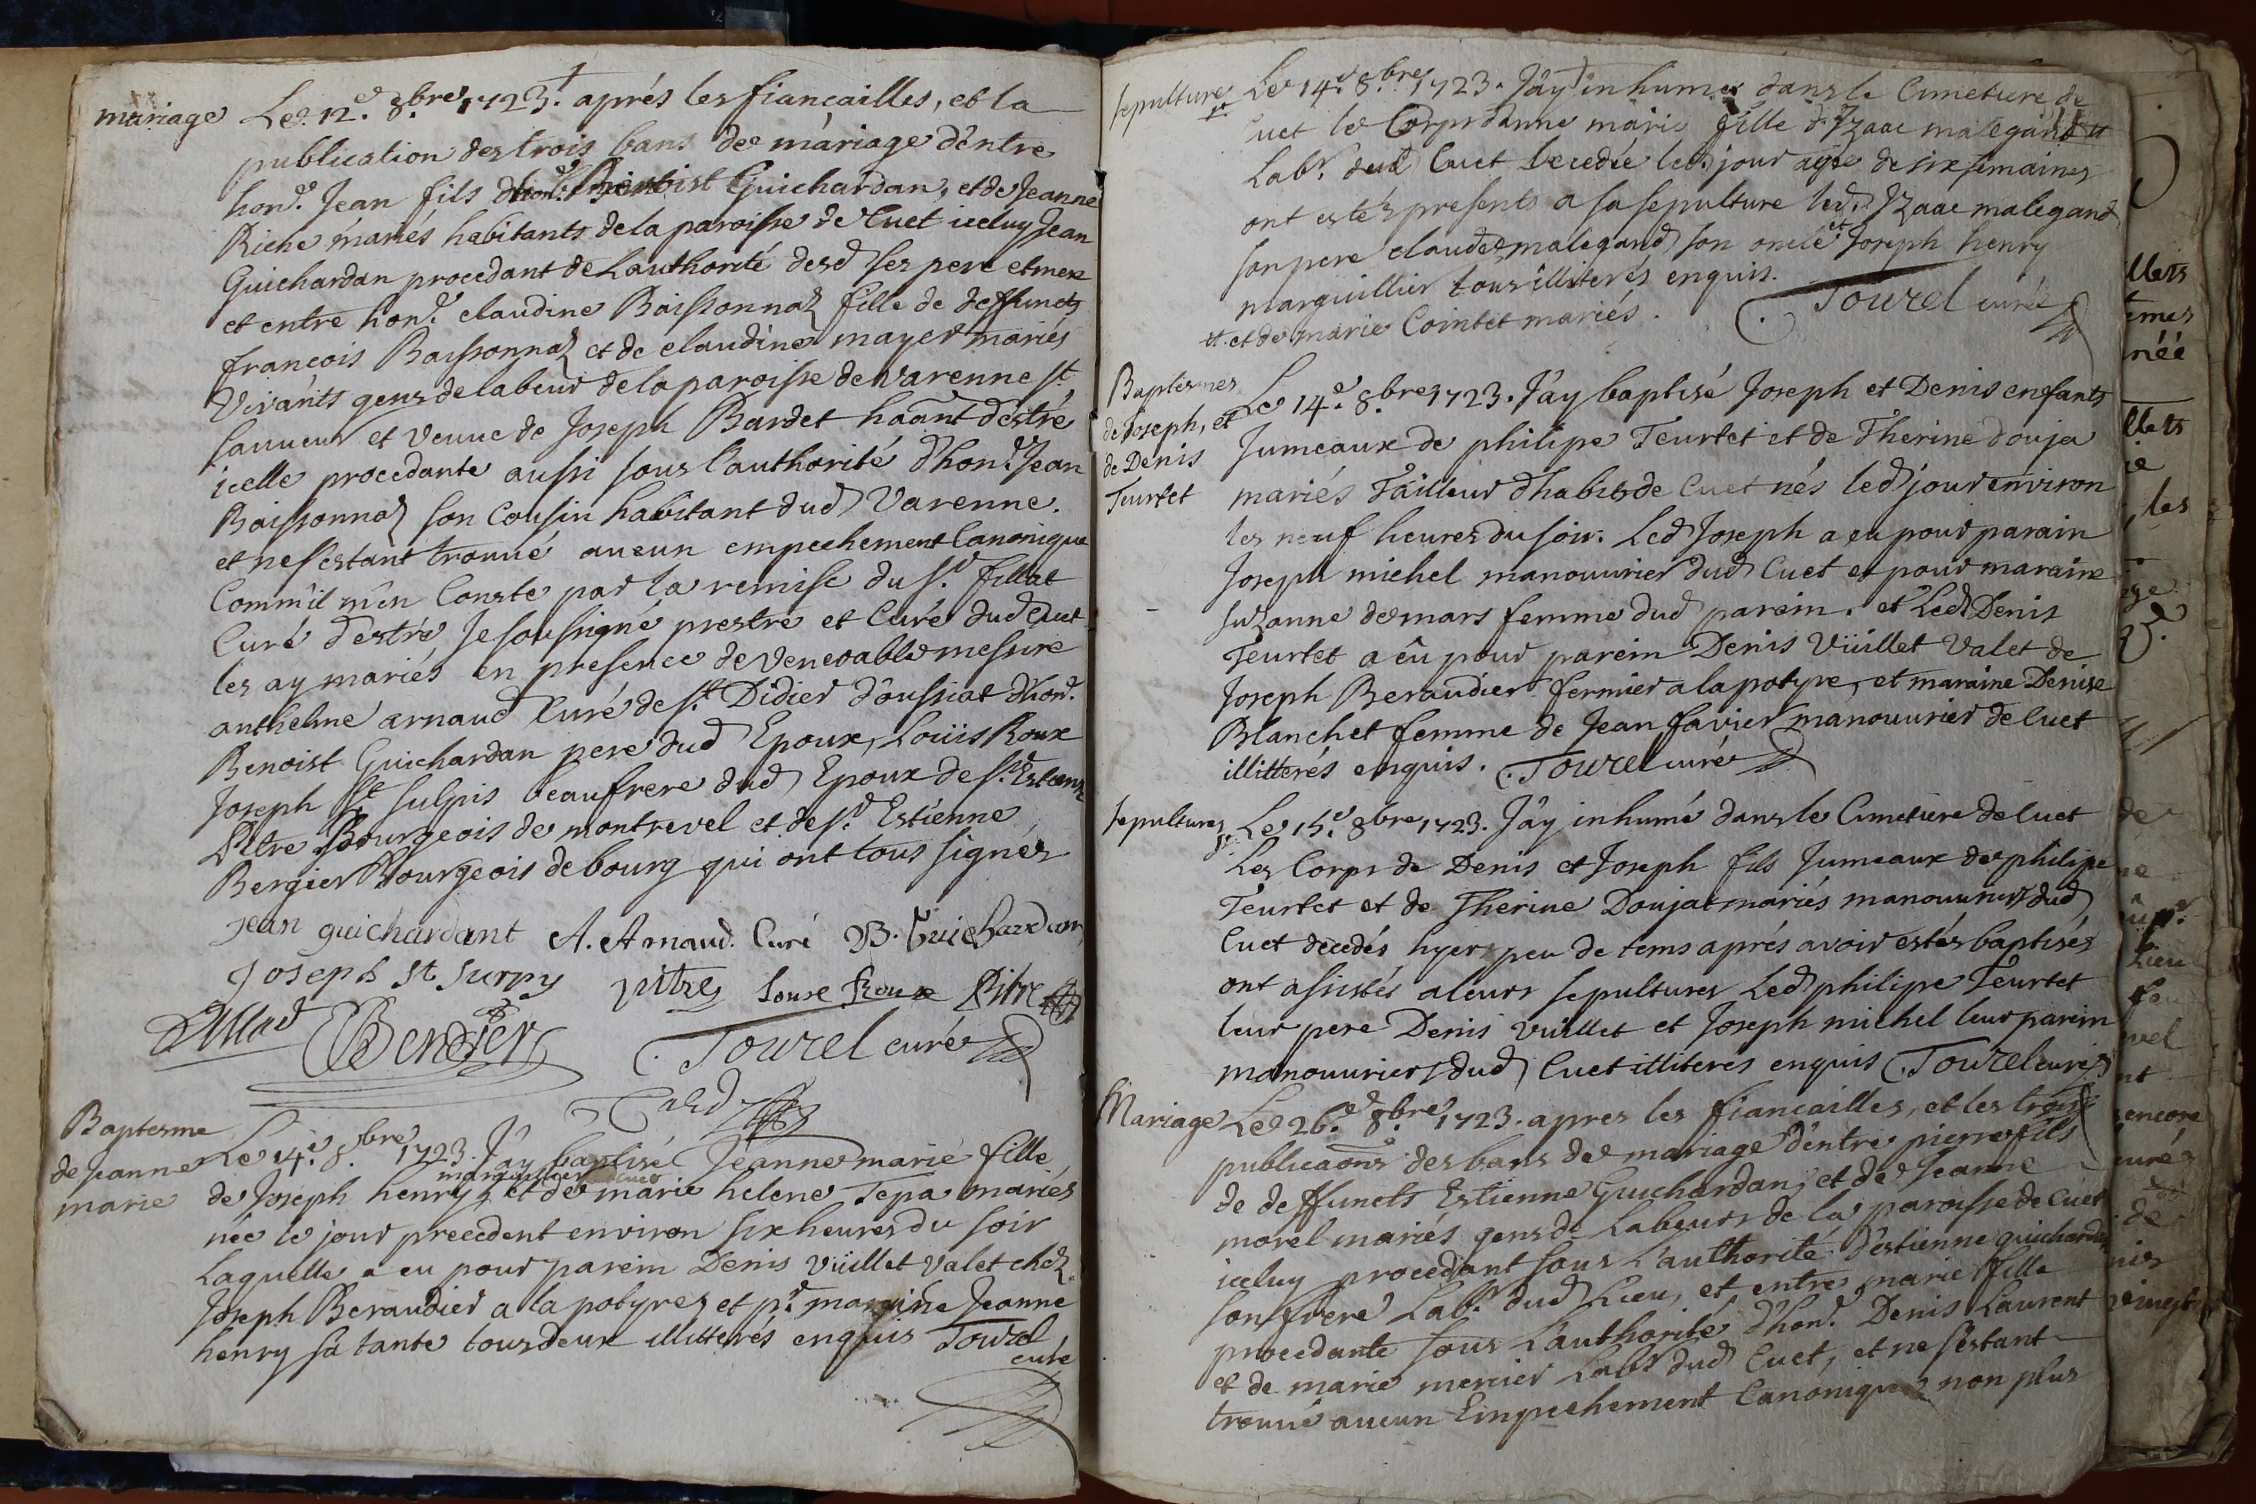 mariage
Le 12.e 8.bre 1723. aprés les fiancailles, et la
publication des trois bans de mariage d'entre
hon.e Jean fils Benoist Guichardan, et de Jeanne
Riche mariés habitants de la paroisse de Cuet iceluy Jean
Guichardan procedant de Lauthorité desd ses pere et mere
et entre hon.e claudine Boissonnaz fille de deffuncts
francois Boissonnaz et de claudine mayer mariés
Vivánts gens de labeur de la paroisse de varenne st
sauueur et veuue de Joseph Bardet d'estré
icelle procedante aussi sous l'authorité d'hon.e Jean
Boissonnaz son Cousin habitant dud Varenne.
et ne s'estant trouué aucun empechement Canonique
Comm'il m'en Conste par la remise du s.r fillat
Curé d'estré, Je soussigné prestre et Curé dud Cuet
les ay mariés en presence de venerable messire
anthelme arnaud Curé de s.t Didier d'oussiat d'hon.e
Benoist Guichardan pere dud Epoux, Loüis Roux
Joseph St sulpis beaufrere dud Epoux de s.r
Pitre Bourgeois de montrevel et de s.r Estienne
Bergier Bourgeois de bourg qui ont tous signés
jean guichardant A. Arnaud. Curé B. Guichardan
Joseph St surpy pitre Roux Pitre
Tourel curé
Baptesme
de Jeanne
marie
Le 14.e 8.bre 1723. J'ay baptisé Jeanne marie fille
marguillier
de Joseph henry, et de marie helene Tepa mariés
née le jour precedent environ six heures du soir
Laquelle a eu pour parein Denis vüillet valet chez
Joseph Beraudier a la potyre et p.r maraine Jeanne
henry sa tante tous deux illitterés enquis Tourel
curé
sepulture
Le 14.e 8.bre 1723. J'ay inhumé dans le Cimetiere de
Cuet le Corps d'anne marie fille d'Izaac malegand #
Lab.r dud Cuet decedée led. jour agée de six semaines
ont estés presents a sa sepulture led. Izaac malegand
son pere claude malegand son oncle et Joseph henry
marguillier tous illiterés enquis.
# et de marie Cointet mariés. Tourel curé
Baptesmes
de Joseph, et
de Denis
Teurtet
Le 14.e 8.bre 1723. J'ay baptisé Joseph et Denis enfants
Jumeaux de philipe Teurtet et de Therine douja
mariés Tailleur d'habits de Cuet nés led jour environ
les neuf heures du soir. Led Joseph a eu pour parain
Joseph michel manouurier dud Cuet et pour maraine
suzanne demars femme dud parein. et Led Denis
Teurtet a eû pour parein Denis Vüillet Valet de
Joseph Beraudier fermier a la potyre, et maraine Denise
Blanchet femme de Jean favier manouurier de Cuet
illitterés enquis. Tourel curé
sepultures
Le 15.e 8.bre 1723. J'ay inhumé dans le Cimetiere de Cuet
Les Corps de Denis et Joseph fils Jumeaux de philipe
Teurtet et de Therine Doujat mariés manouurier dud
Cuet decedés hyer peu de tems aprés avoir estés baptisés
ont assistés a leurs sepultures Led philipe Teurtet
leur pere Denis vüillet et Joseph michel leur parein
manouuriers dud Cuet illiteres enquis Tourel curé
Mariage
Le 26.e 8.bre 1723. apres les fiancailles, et les trois
publicaons des bans de mariage d'entre pierre fils
de deffuncts Estienne Guichardan, et de Jeanne
morel mariés gens de Labeurs de la paroisse de Cuet
iceluy procedant sous L'authorité d'estienne guichardan
son frere Lab.r dud Lieu, et entre marie fille
procedante sous L'authorité d'hon.e Denis Laurent
et de marie mercier Lab.r dud Cuet, et ne s'estant
trouué aucun Empechement Canonique non plus